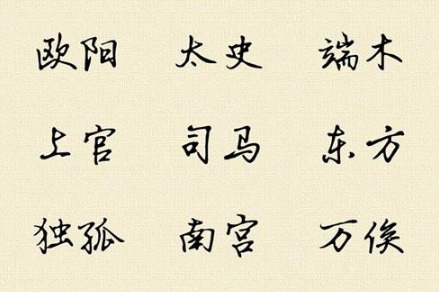 欧阳 太史 端木
上官 司马 东方
独孤 南宫 万俟